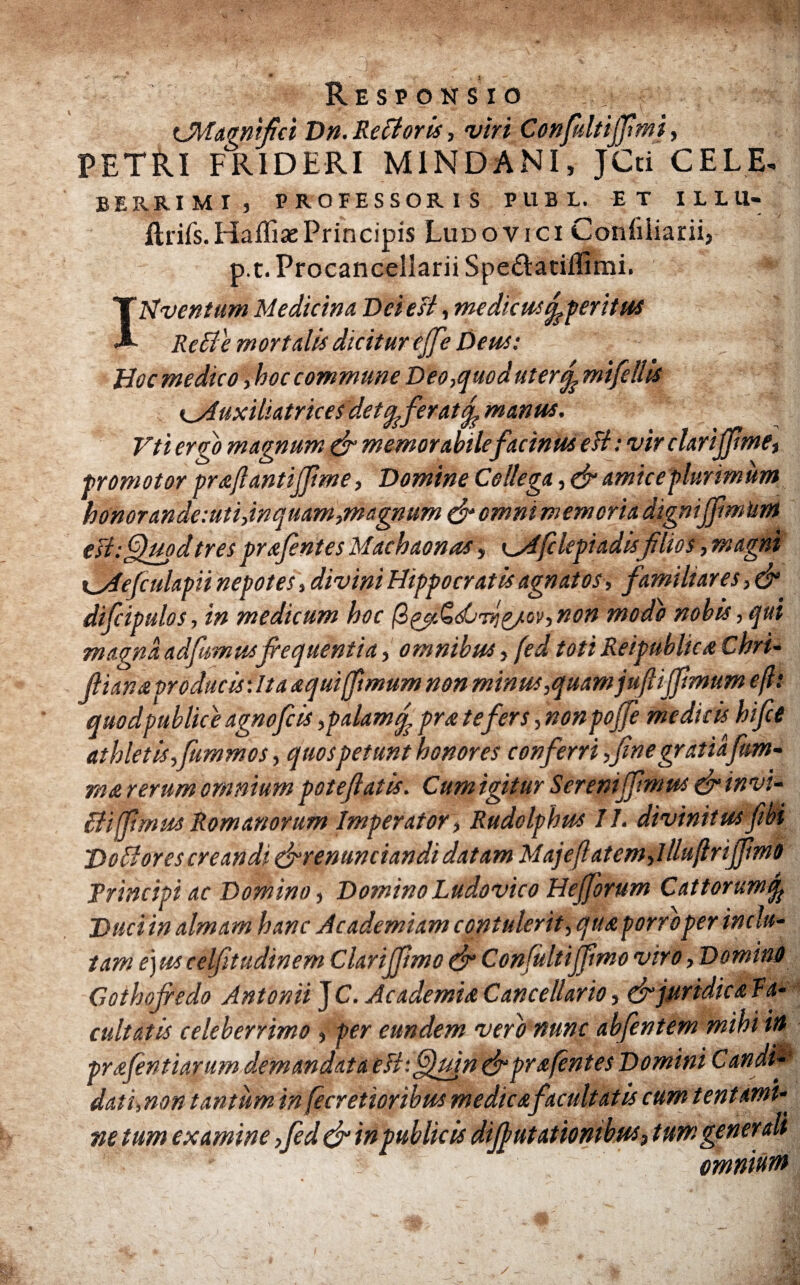 RESPONSIO
Magnifici Dn. Rectoris, viri Consultiſſimi,
PETRI FRIDERI MINDANI, JCti CELE-
BERRIMI, PROFESSORIS PUBL. ET ILLU-
ſtriſs. Haſſiæ Principis LUDOVICI Conſiliarii,
p.t. Procancellarii Spectatiſſimi.
INventum Medicina Dei eſt, medicusq́; peritus
Recte mortalis dicitur eſſe Deus:
Hoc medico, hoc commune Deo, quod uterq́; miſellis
Auxiliatrices detq́; feratq́; manus.
Vti ergò magnum & memorabile facinus eſt: vir clariſſime,
promotor præſtantiſſime, Domine Collega, & amice plurimùm
honorande: uti, inquam, magnum & omni memoria digniſſimùm
eſt: Quod tres præſentes Machaonas, Aſclepiadis filios, magni
Aeſculapii nepotes, divini Hippocratis agnatos, familiares, &
diſcipulos, in medicum hoc βραβευτήριον, non modò nobis, qui
magnâ adſumus frequentia, omnibus, ſed toti Reipublicæ Chri-
ſtianæ producis: Ita æquiſſimum non minus, quam juſtiſſimum eſt:
quod publicè agnoſcis, palamq́; præ te fers, non poſſe medicis hiſce
athletis, ſummos, quos petunt honores conferri, ſine gratiâ ſum-
mæ rerum omnium poteſtatis. Cum igitur Sereniſſimus & invi-
ctiſſimus Romanorum Imperator, Rudolphus II. divinitus ſibi
Doctores creandi & renunciandi datam Majeſtatem, Illuſtriſſimo
Principi ac Domino, Domino Ludovico Heſſorum Cattorumq́;
Duci in almam hanc Academiam contulerit, quæ porrò per inclu-
tam ejus celſitudinem Clariſſimo & Conſultiſſimo viro, Domino
Gothofredo Antonii JC. Academiæ Cancellario, & juridicæ Fa-
cultatis celeberrimo, per eundem verò nunc abſentem mihi in
præſentiarum demandata eſt: Quin & præſentes Domini Candi-
dati, non tantùm in ſecretioribus medicæ facultatis cum tentami-
ne tum examine, ſed & in publicis diſputationibus, tum generali
omnium